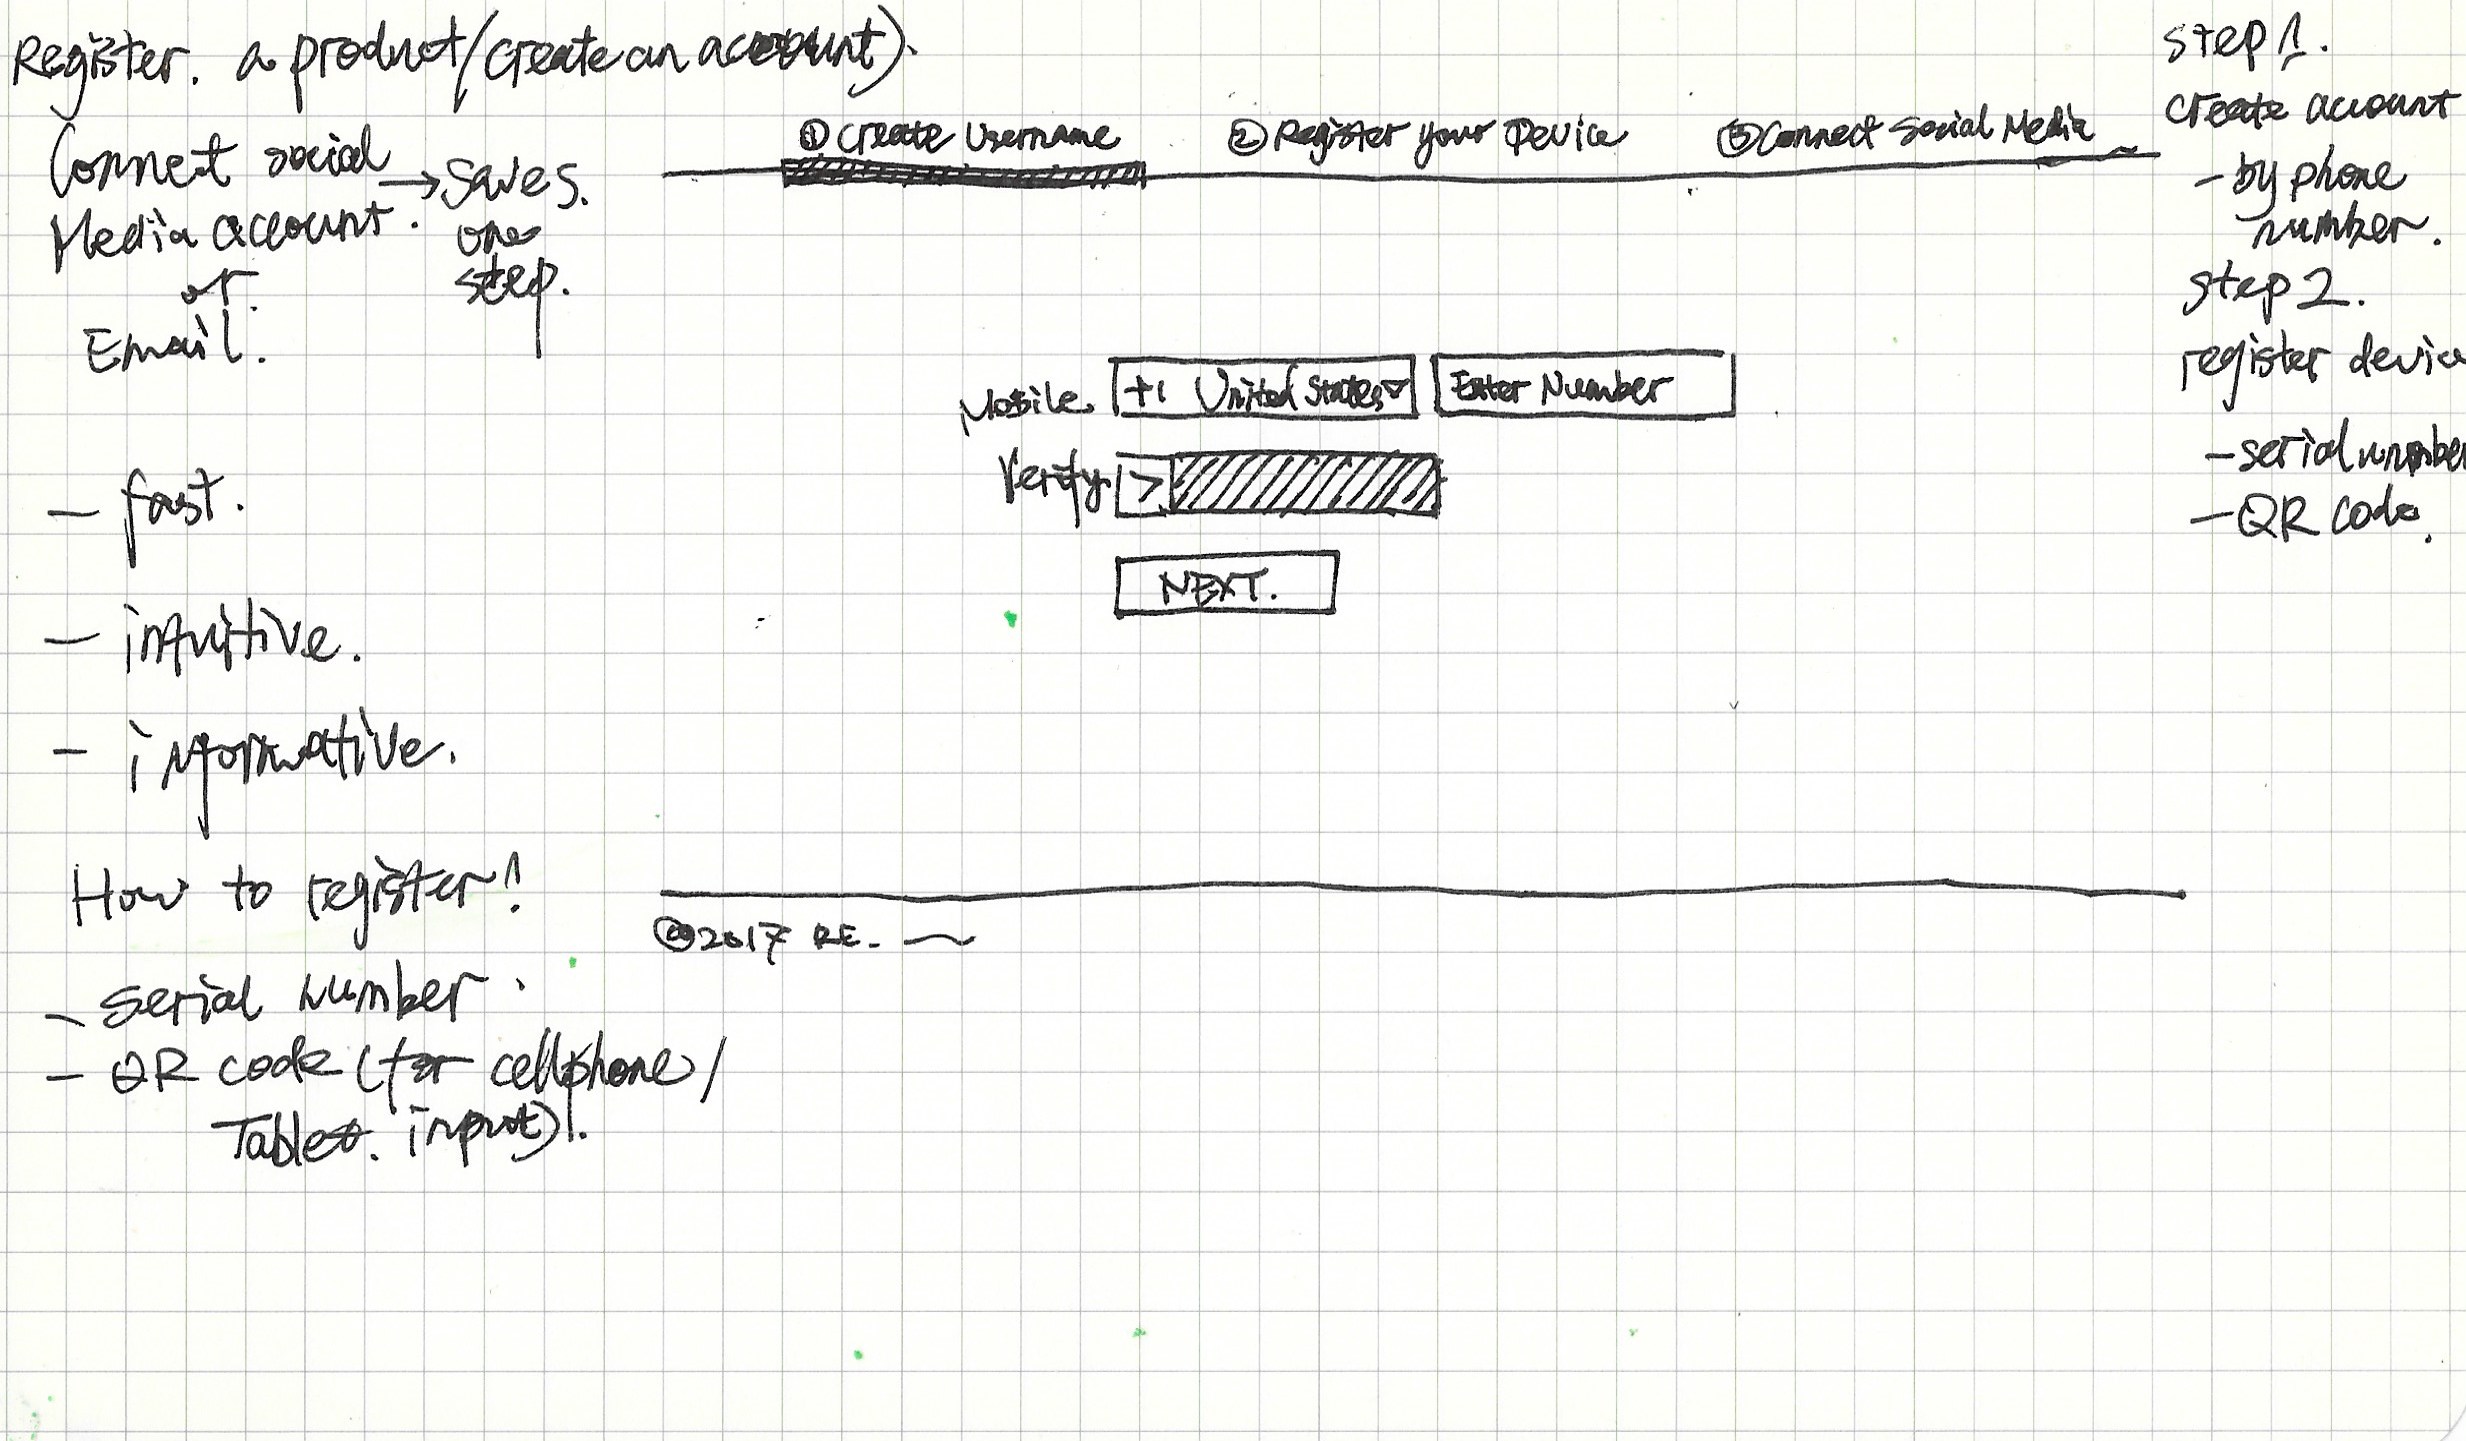 Register. a product/(create an account).
Connect social
Media account.
or.
Email.
→ saves.
one
step.
- fast.
- intuitive.
- informative.
How to register!
- serial number.
- QR code (for cellphone/
Tablet. input).
① Create Username
② Register your Device
③ Connect Social Media
Mobile. +1 United States Enter Number
Verify >
NEXT.
©2017 RE.
step 1.
create account
- by phone
number.
step 2.
register device
- serial number
- QR code.